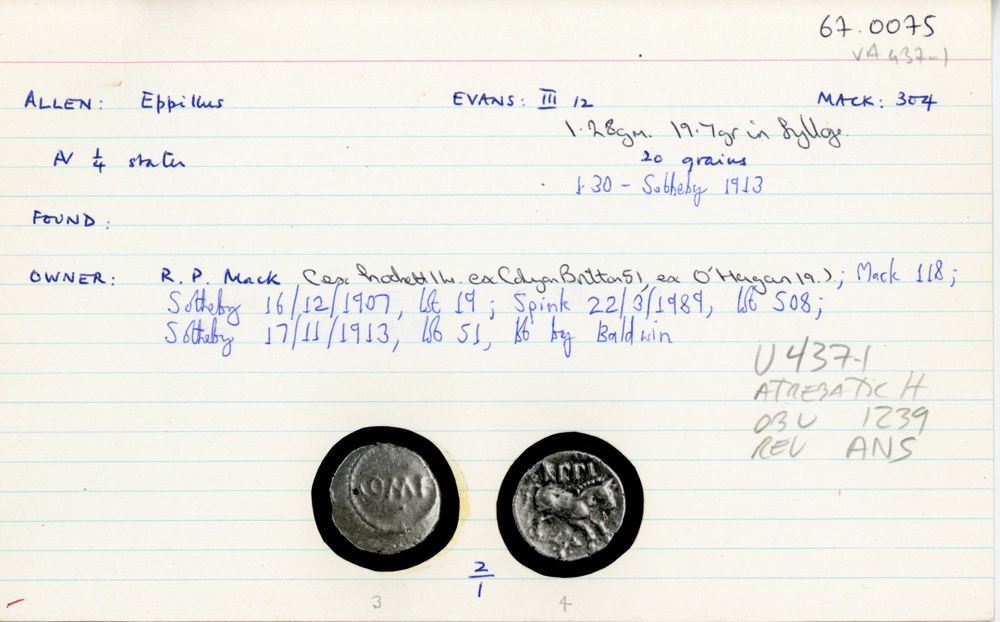 67.0075
VA 437-1
ALLEN: Eppillus EVANS: III 12 MACK: 304
1.28gm. 19.7gr in Sylloge.
AV 1/4 stater 20 grains
1.30 - Sotheby 1913
FOUND:
OWNER: R. P. Mack (ex Lockett 14. ex Colyer Britton 51, ex O'Hagan 19.); Mack 118;
Sotheby 16/12/1907, lot 19; Spink 22/3/1989, lot 508;
Sotheby 17/11/1913, lot 51, bt by Baldwin
U 437-1
ATREBATIC H
OBV 1239
REV ANS
COMF
EPPI
2/1
3 4